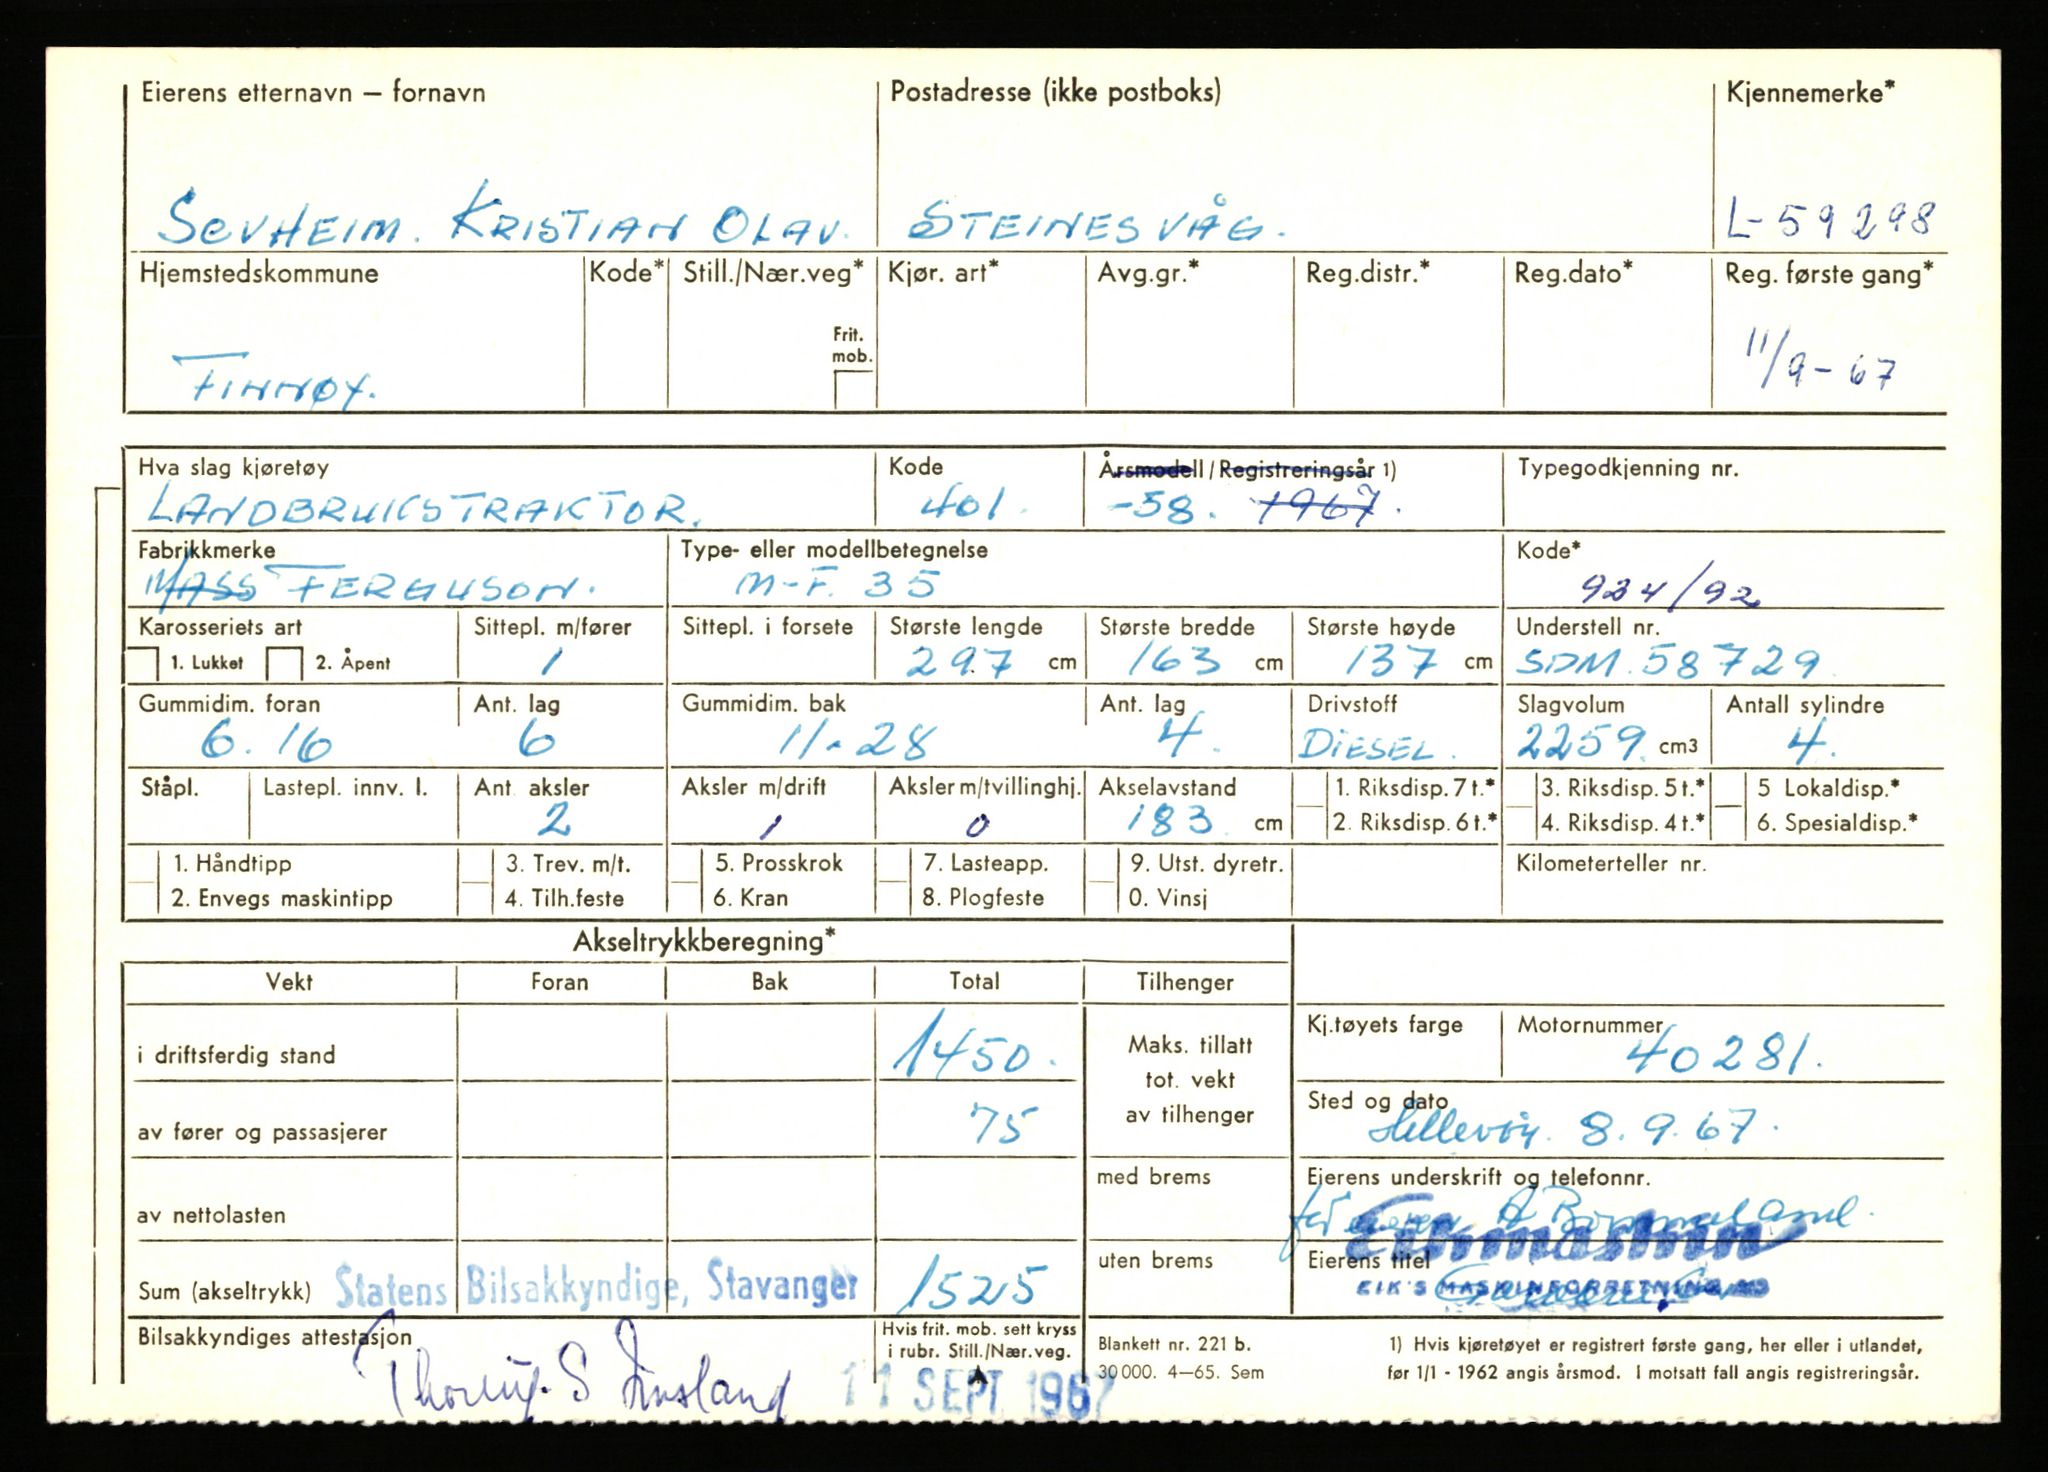 Eierens etternavn – fornavn Postadresse (ikke postboks) Kjennemerke*
SOVHEIM. KRISTIAN OLAV. STEINESVÅG. L-59298
Hjemstedskommune Kode* Still./Nær.veg* Kjør. art* Avg.gr.* Reg.distr.* Reg.dato* Reg. første gang*
Frit.
mob.
FINNØY. 11/9-67
Hva slag kjøretøy Kode Årsmodell / Registreringsår 1) Typegodkjenning nr.
LANDBRUKSTRAKTOR. 401. -58. 1967.
Fabrikkmerke Type- eller modellbetegnelse Kode*
MASS FERGUSON. M-F. 35 924/92
Karosseriets art Sittepl. m/fører Sittepl. i forsete Største lengde Største bredde Største høyde Understell nr.
1. Lukket 2. Åpent 1 297 cm 163 cm 137 cm SDM.58729
Gummidim. foran Ant. lag Gummidim. bak Ant. lag Drivstoff Slagvolum Antall sylindre
6.16 6 11-28 4. DIESEL. 2259. cm3 4.
Ståpl. Lastepl. innv. l. Ant. aksler Aksler m/drift Aksler m/tvillinghj. Akselavstand 1. Riksdisp. 7 t.* 3. Riksdisp. 5 t.* 5 Lokaldisp.*
2 1 0 183 cm 2. Riksdisp. 6 t.* 4. Riksdisp. 4 t.* 6. Spesialdisp.*
1. Håndtipp 3. Trev. m/t. 5. Prosskrok 7. Lasteapp. 9. Utst. dyretr. Kilometerteller nr.
2. Envegs maskintipp 4. Tilh.feste 6. Kran 8. Plogfeste 0. Vinsj
Akseltrykkberegning*
Vekt Foran Bak Total Tilhenger
i driftsferdig stand 1450. Maks. tillatt
tot. vekt
av tilhenger
Kj.tøyets farge Motornummer
40281.
av fører og passasjerer 75
Sted og dato
Hellevøy. 8.9.67.
av nettolasten
med brems
Eierens underskrift og telefonnr.
for eieren A
Eikmaskin
uten brems Eierens titel
EIK'S MASKINFORRETNING
Sum (akseltrykk) Statens Bilsakkyndige, Stavanger 1525
Bilsakkyndiges attestasjon Hvis frit. mob. sett kryss
i rubr. Still./Nær.veg.
11 SEPT 1967
Blankett nr. 221 b.
30 000. 4–65. Sem
1) Hvis kjøretøyet er registrert første gang, her eller i utlandet,
før 1/1 - 1962 angis årsmod. I motsatt fall angis registreringsår.